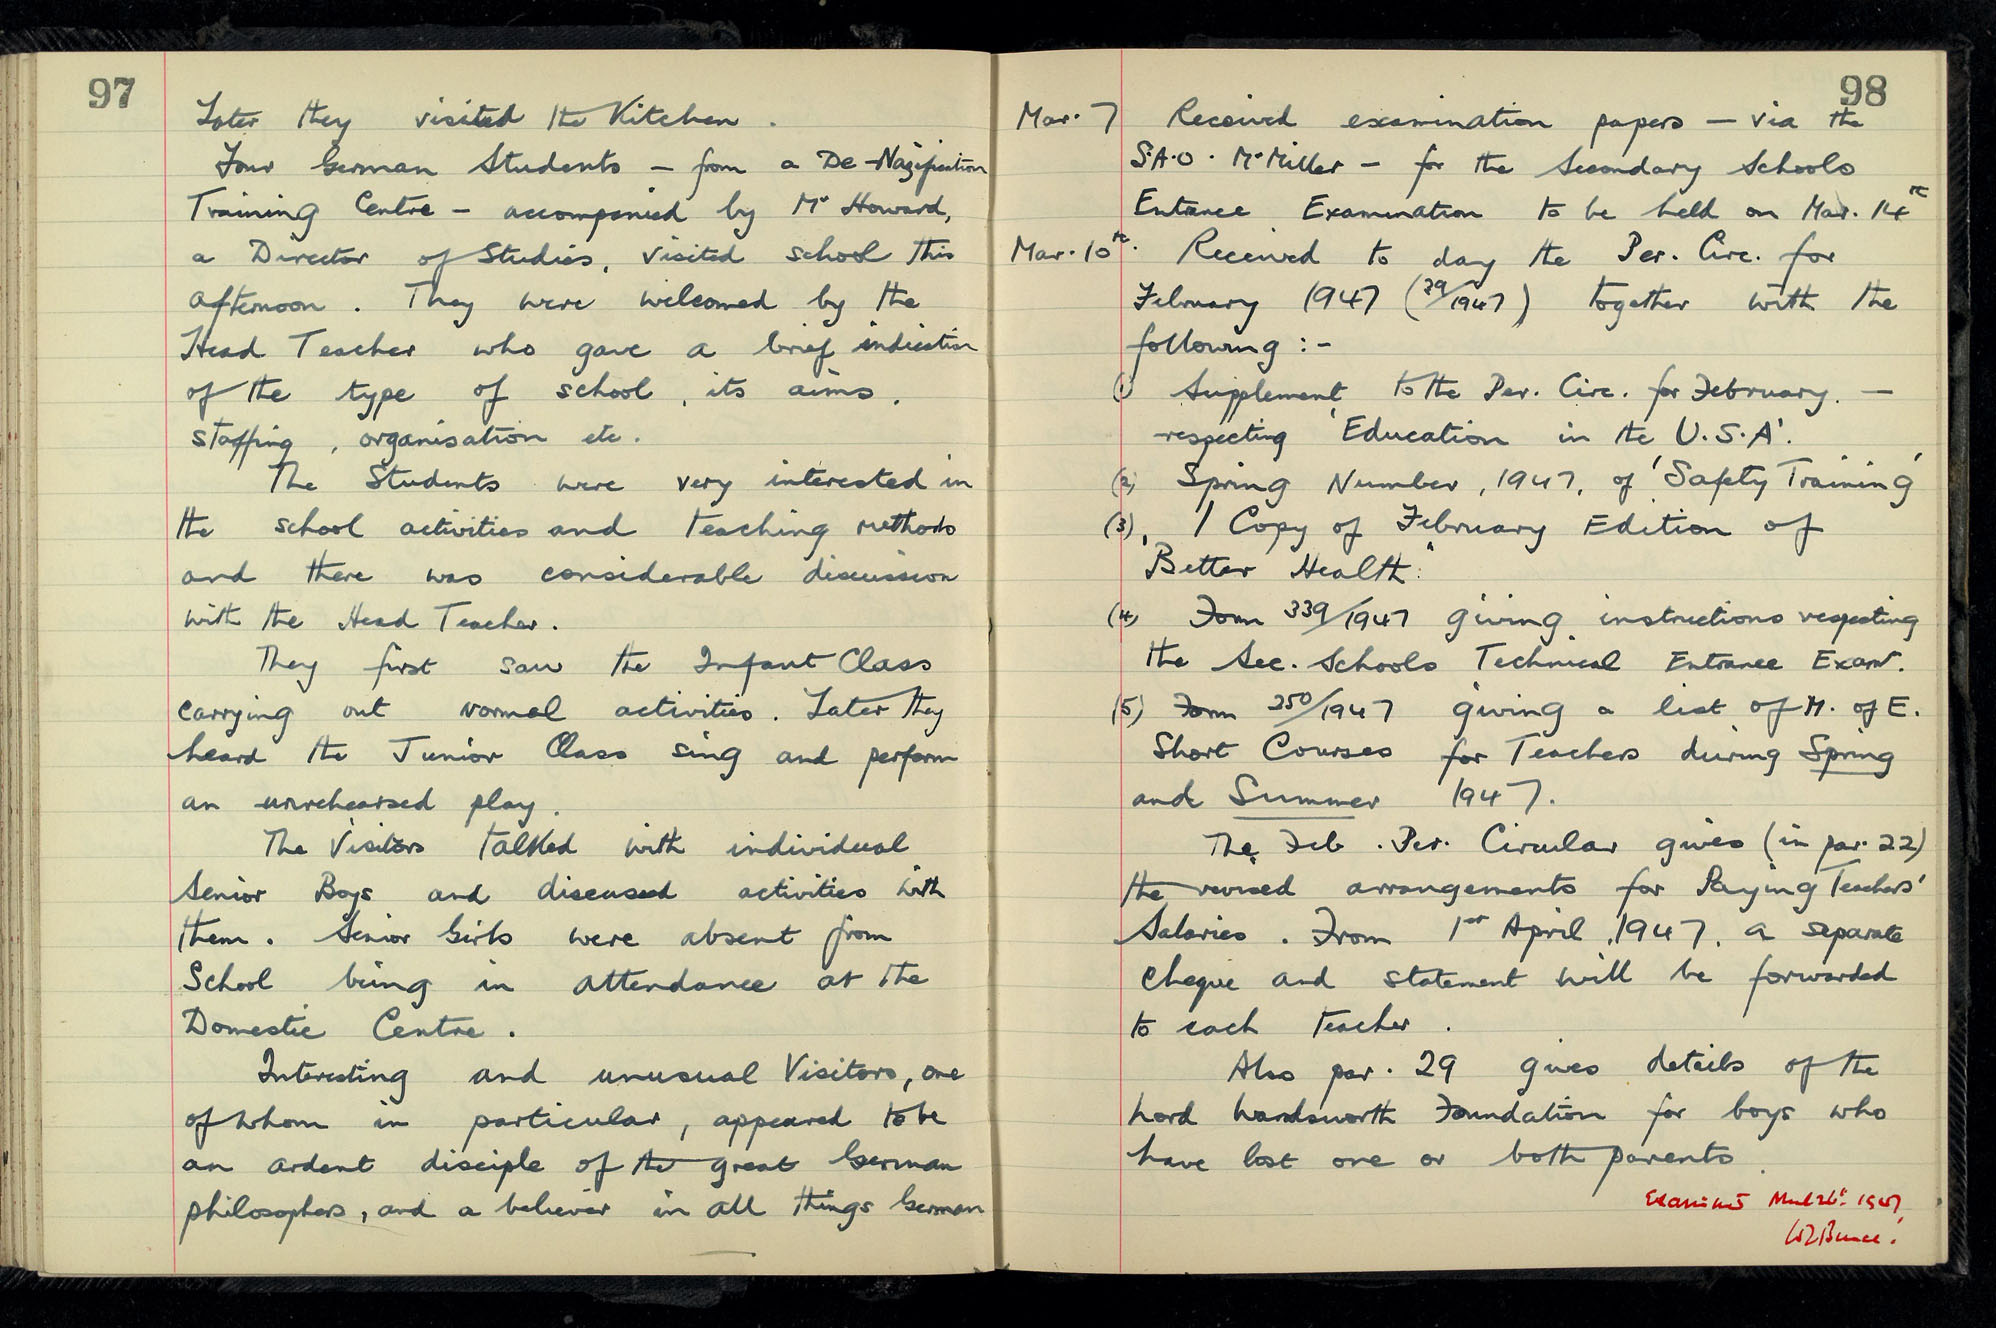 97
Later they visited the Kitchen .
Four German Students – from a De-Nazification
Training Centre – accompanied by Mr Howard,
a Director of Studies, visited school this
afternoon . They were welcomed by the
Head Teacher who gave a brief indication
of the type of school , its aims ,
staffing , organisation etc .
The Students were very interested in
the school activities and teaching methods
and there was considerable discussion
with the Head Teacher .
They first saw the Infant Class
carrying out normal activities . Later they
heard the Junior Class sing and perform
an unrehearsed play .
The Visitors talked with individual
Senior Boys and discussed activities with
them . Senior Girls were absent from
School being in attendance at the
Domestic Centre .
Interesting and unusual Visitors, one
of whom in particular, appeared to be
an ardent disciple of the great German
philosophers, and a believer in all things German
98
Mar. 7 Received examination papers – via the
S.A.O. Mr Miller – for the Secondary Schools
Entrance Examination to be held on Mar. 14th
Mar. 10th. Received to day the Per. Circ. for
February 1947 (29/1947) together with the
following :-
(1) Supplement to the Per. Circ. for February. –
respecting 'Education in the U.S.A'.
(2) Spring Number, 1947, of 'Safety Training'
(3) 1 Copy of February Edition of
"Better Health."
(4) Form 339/1947 giving instructions respecting
the Sec. Schools Technical Entrance Exam.
(5) Form 350/1947 giving a list of M. of E.
Short Courses for Teachers during Spring
and Summer 1947.
The Feb. Per. Circular gives (in par. 22)
the revised arrangements for Paying Teachers'
Salaries . From 1st April, 1947, a separate
cheque and statement will be forwarded
to each teacher .
Also par. 29 gives details of the
Lord Wandsworth Foundation for boys who
have lost one or both parents .
Examined 1947